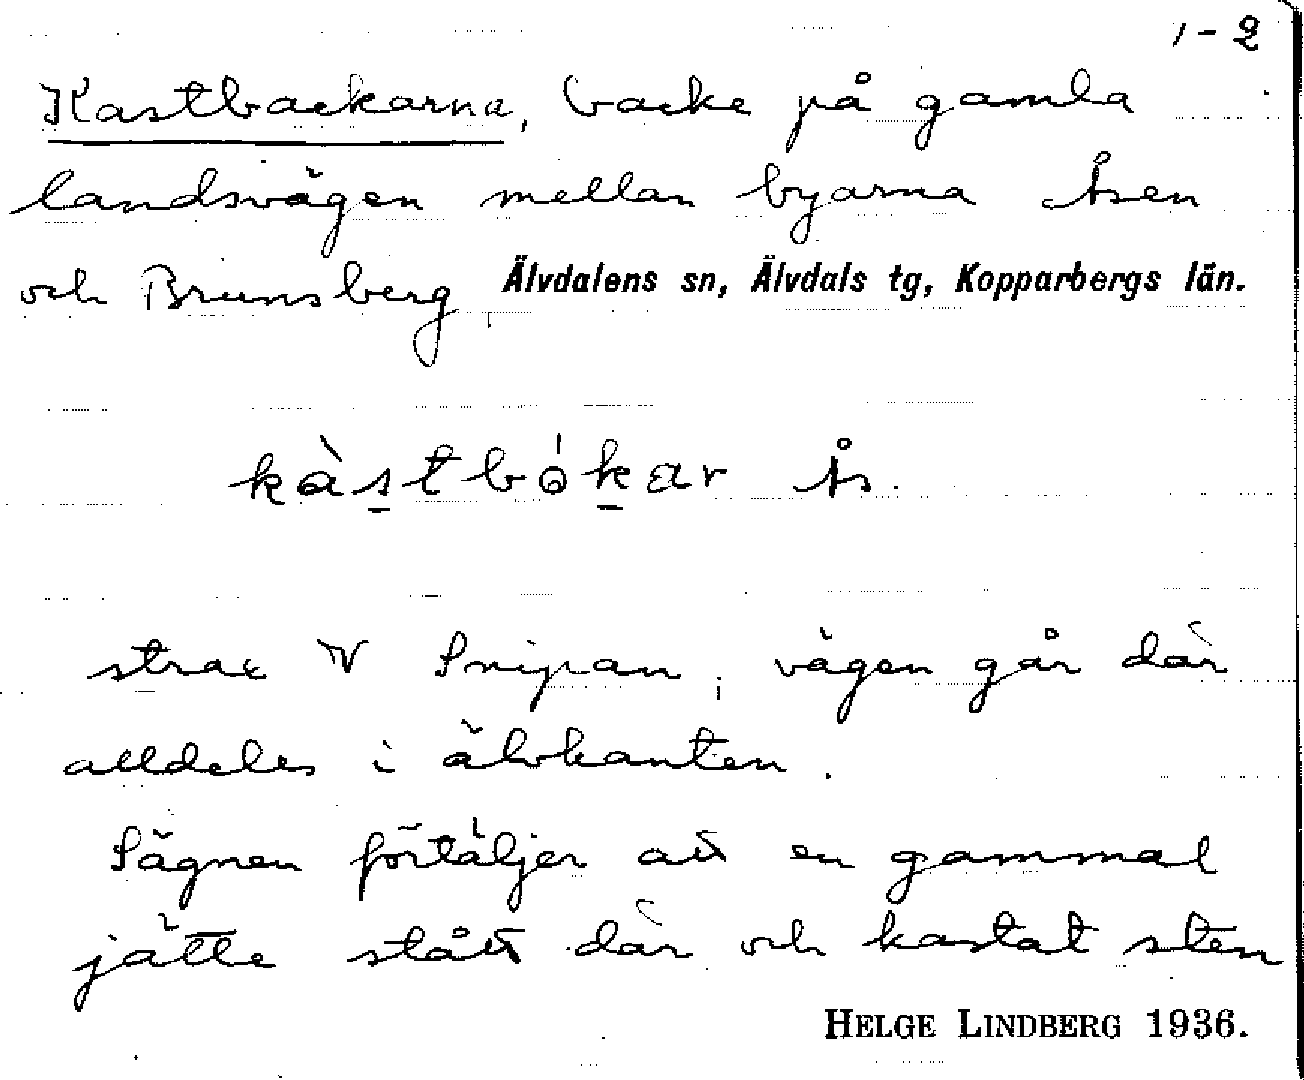 1-2
Kastbackarna, backe på gamla
landsvägen mellan byarna Åsen
och Brunsberg Älvdalens sn, Älvdals tg, Kopparbergs län.
kàstbókar Ås.
strax V Snipan, vägen går där
alldeles i älvkanten.
Sägnen förtäljer att en gammal
jätte stått där och kastat sten
HELGE LINDBERG 1936.